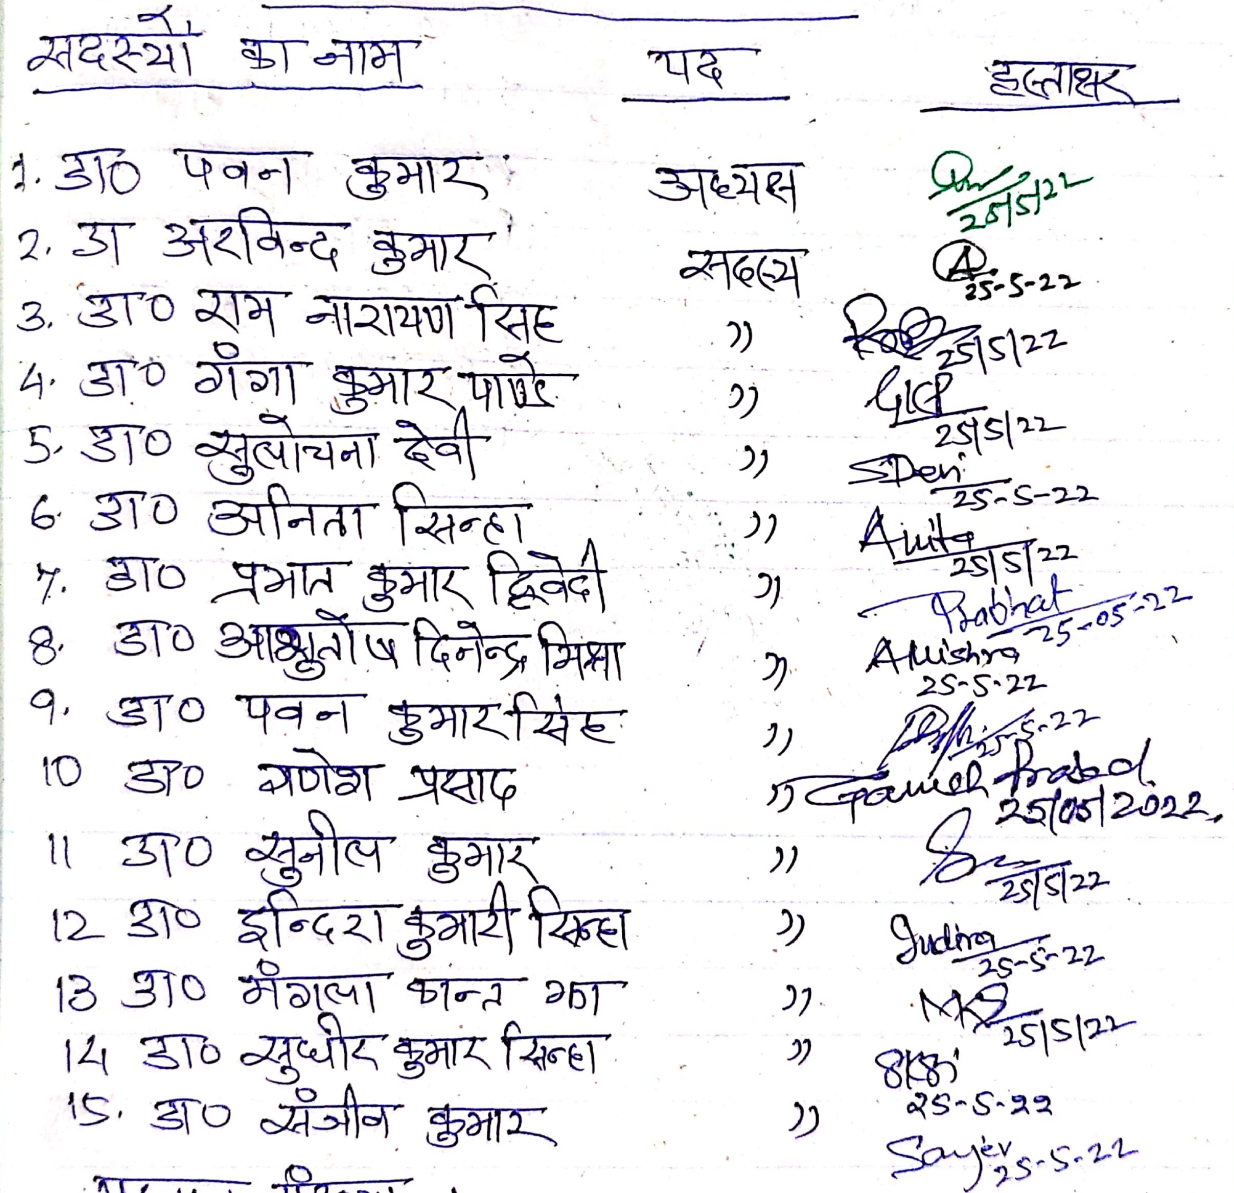 सदस्यों का नाम पद हस्ताक्षर
1. डा० पवन कुमार अध्यक्ष 25/5/22
2. डा अरविन्द कुमार सदस्य A 25-5-22
3. डा० राम नारायण सिंह " 25/5/22
4. डा० गंगा कुमार पाण्डे " GKP 25/5/22
5. डा० सुलोचना देवी " SDevi 25-5-22
6. डा० अनिता सिन्हा " Anita 25/5/22
7. डा० प्रभात कुमार द्विवेदी " Prabhat 25-05-22
8. डा० आशुतोष दिनेन्द्र मिश्रा " AMishra 25-5-22
9. डा० पवन कुमार सिंह " 25-5-22
10 डा० गणेश प्रसाद " Ganesh Prasad 25/05/2022.
11 डा० सुनील कुमार " 25/5/22
12 डा० इन्दिरा कुमारी सिन्हा " Indira 25-5-22
13 डा० मंगला कान्त झा " 25/5/22
14 डा० सुधीर कुमार सिन्हा " 25-5-22
15. डा० संजीव कुमार " Sanjev 25-5-22